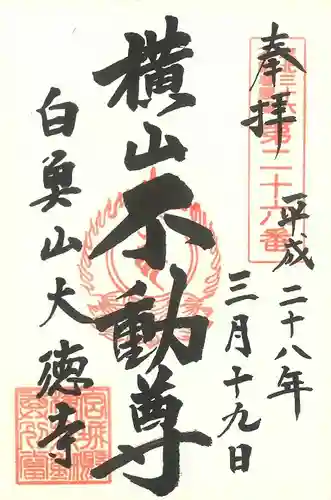 奉拝
第二十六番
平成二十八年
三月十九日
横山不動尊
白魚山大徳寺